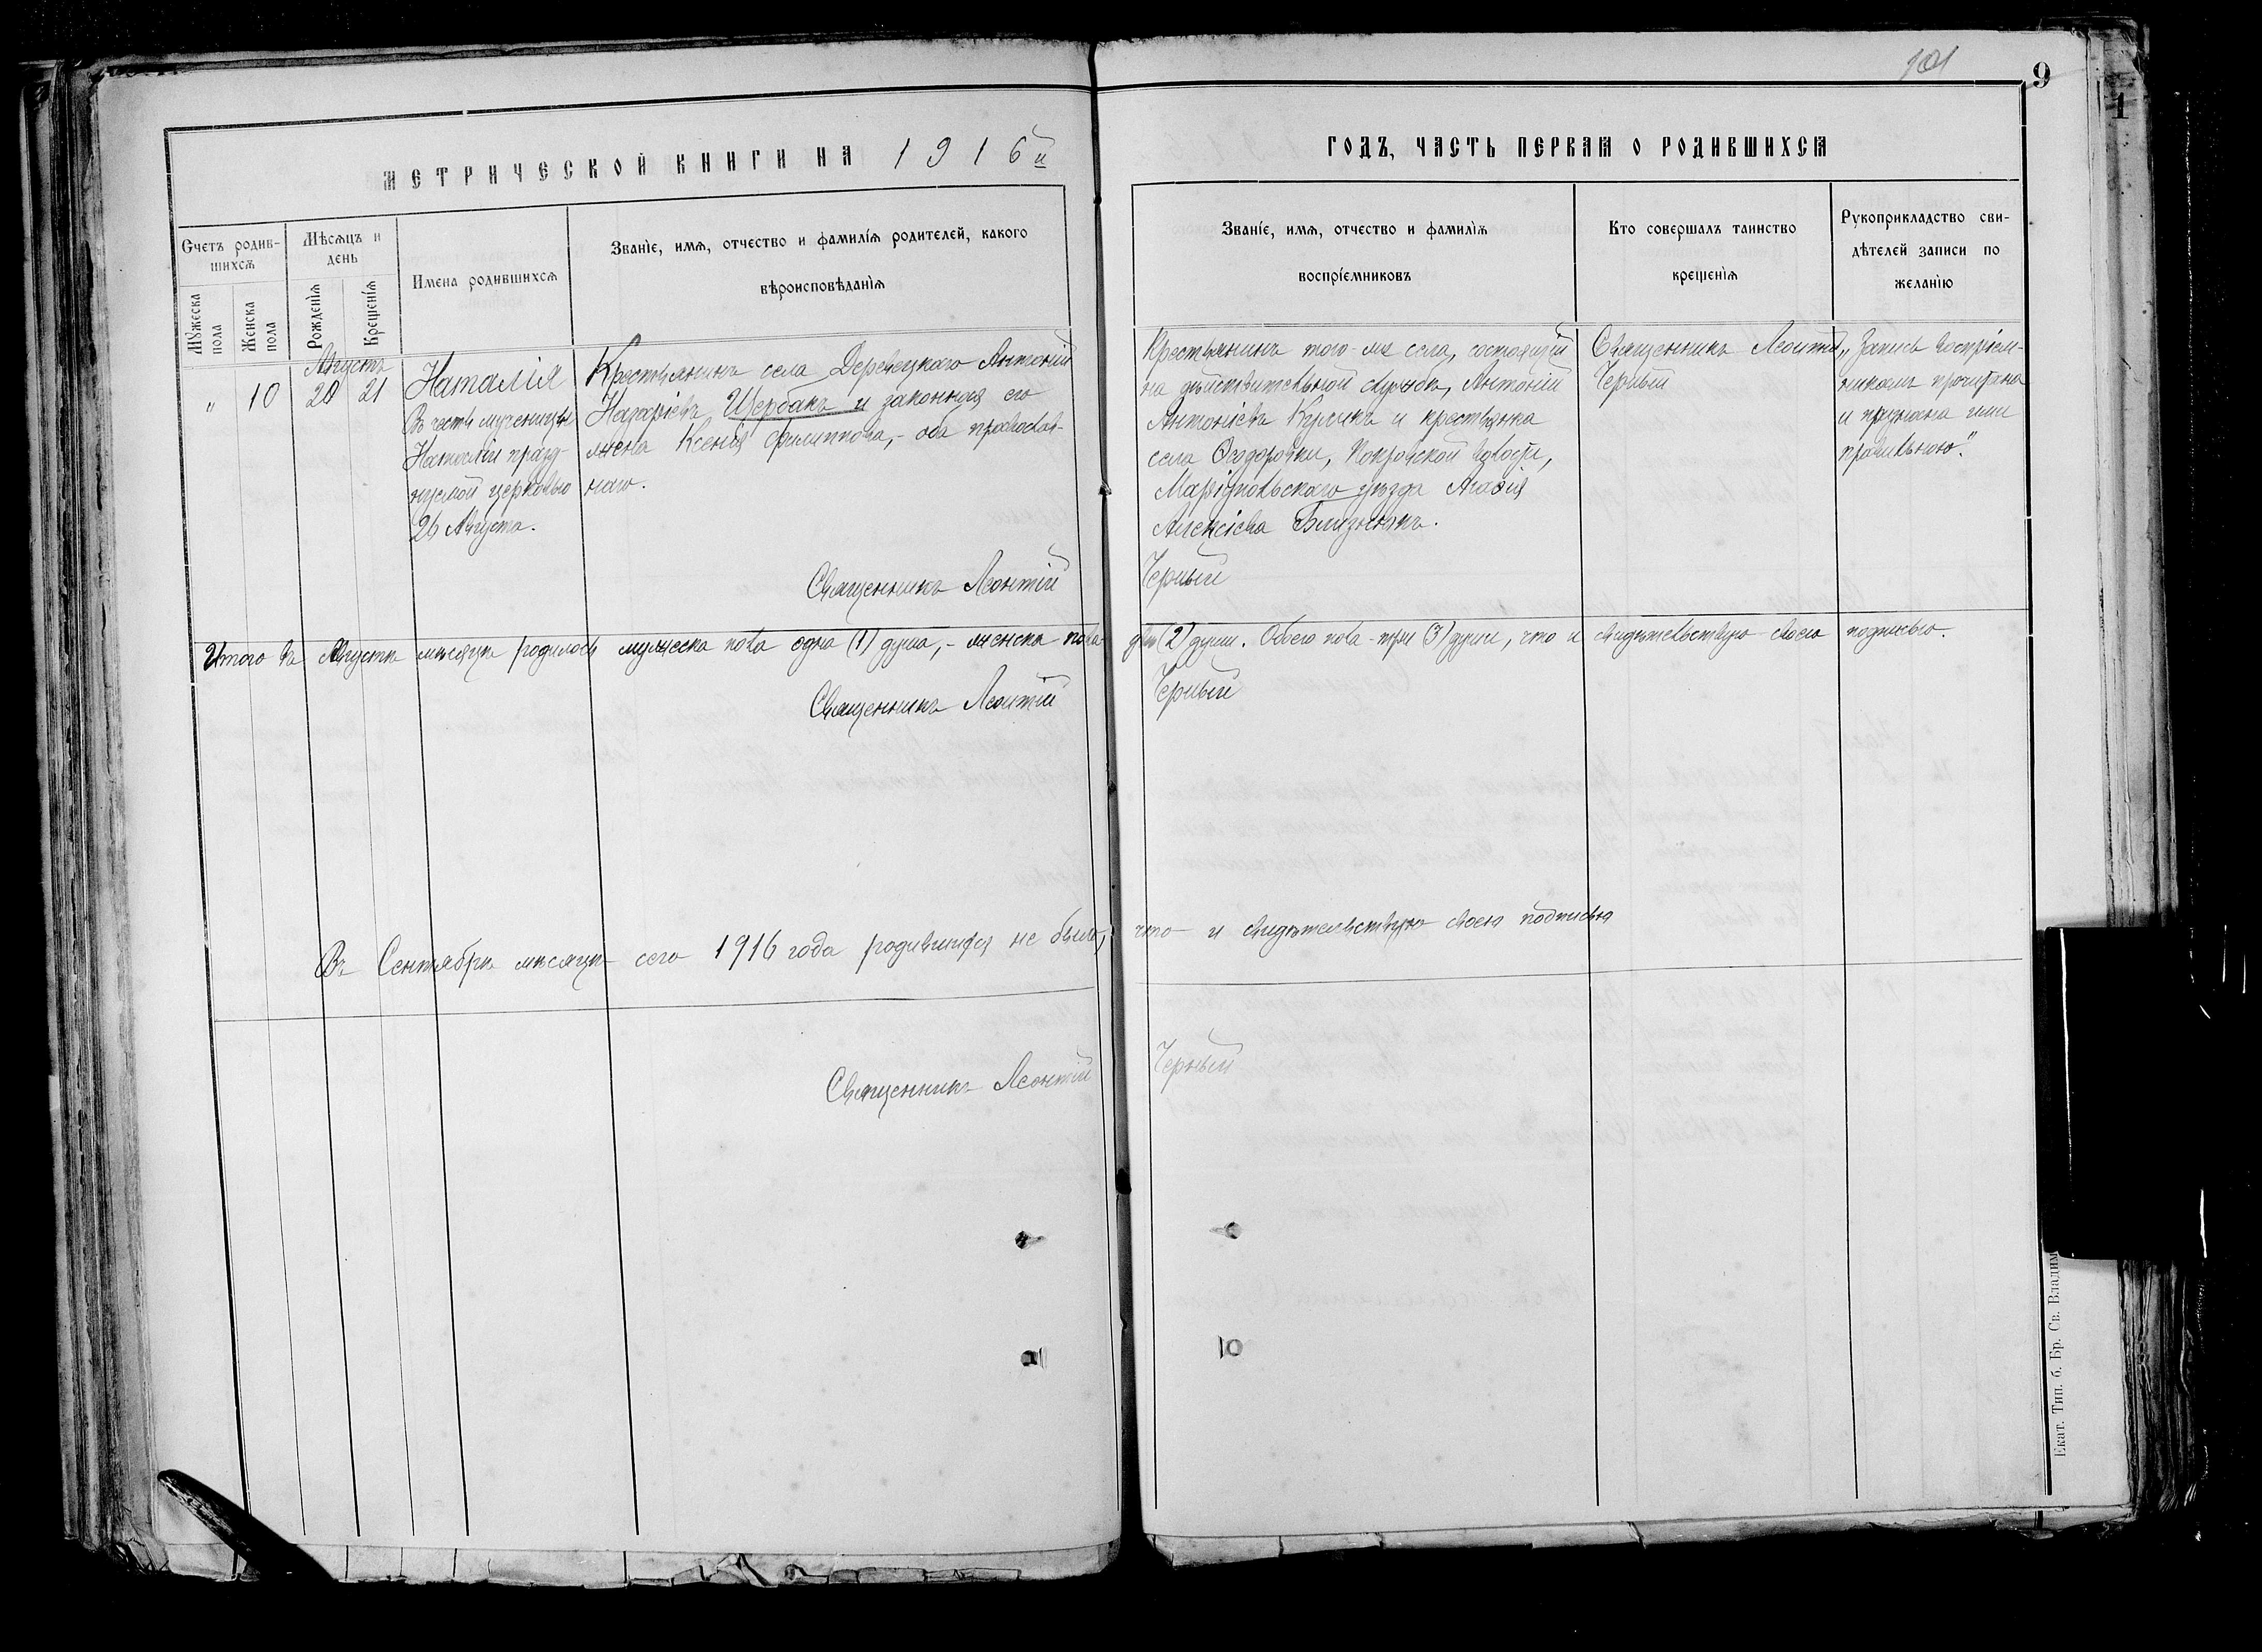 101
9
1
МЕТРИЧЕСКОЙ КНИГИ НА 1916й
ГОДЪ, ЧАСТЬ ПЕРВАЯ О РОДИВШИХСЯ
Счетъ родив-
шихся
Мужеска
пола
Женска
пола
Мѣсяцъ и
день
Рожденія
Крещенія
Имена родившихся
Званіе, имя, отчество и фамилія родителей, какого
вѣроисповѣданія
Званіе, имя, отчество и фамилія
воспріемниковъ
Кто совершалъ таинство
крещенія
Рукоприкладство сви-
дѣтелей записи по
желанію
Августъ
„ 10 20 21
Наталія
Въ честь мученицы
Наталіи празд-
нуемой церковью
26 Августа.
Крестьянинъ села Деревецкаго Антоній
Назаріевъ Щербакъ и законная его
жена Ксенія Филиппова,- оба православ-
наго.
Крестьянинъ того-же села, состоящій
на дѣйствительной службѣ, Антоній
Антоніевъ Куликъ и крестьянка
села Ѳеодоровки, Покровской волости,
Маріупольскаго уѣзда Агафія
Алексіева Близнюкъ.
Священникъ Леонтій
Черный
„Запись воспріем-
никамъ прочитана
и признана ими
правильною".
Священникъ Леонтій Черный
Итого въ Августѣ мѣсяцѣ родилось мужеска пола одна (1) душа,- женска пола двѣ (2) души. Обоего пола - три (3) души, что и свидѣтельствую своею подписью.
Священникъ Леонтій Черный
Въ Сентябрѣ мѣсяцѣ сего 1916 года родившихся не было, что и свидѣтельствую своею подписью
Священникъ Леонтій Черный
Екат. Тип. б. Бр. Св. Владим